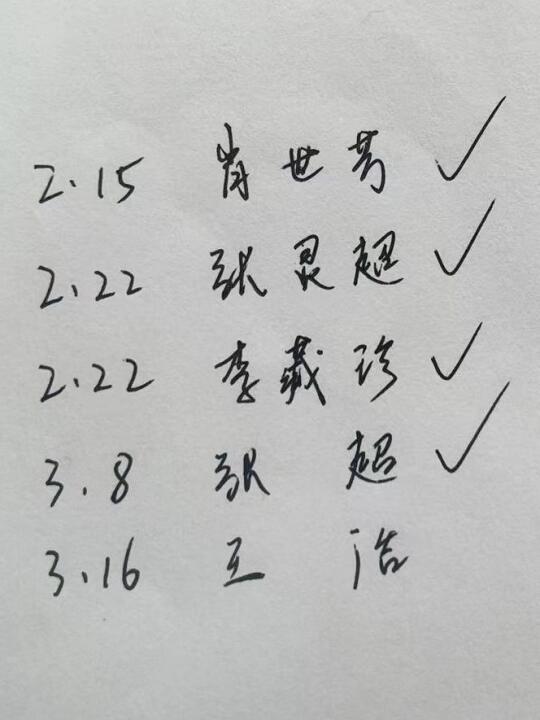 2.15 肖世芳 ✓
2.22 张灵超 ✓
2.22 李藏珍 ✓
3.8 张超 ✓
3.16 王浩